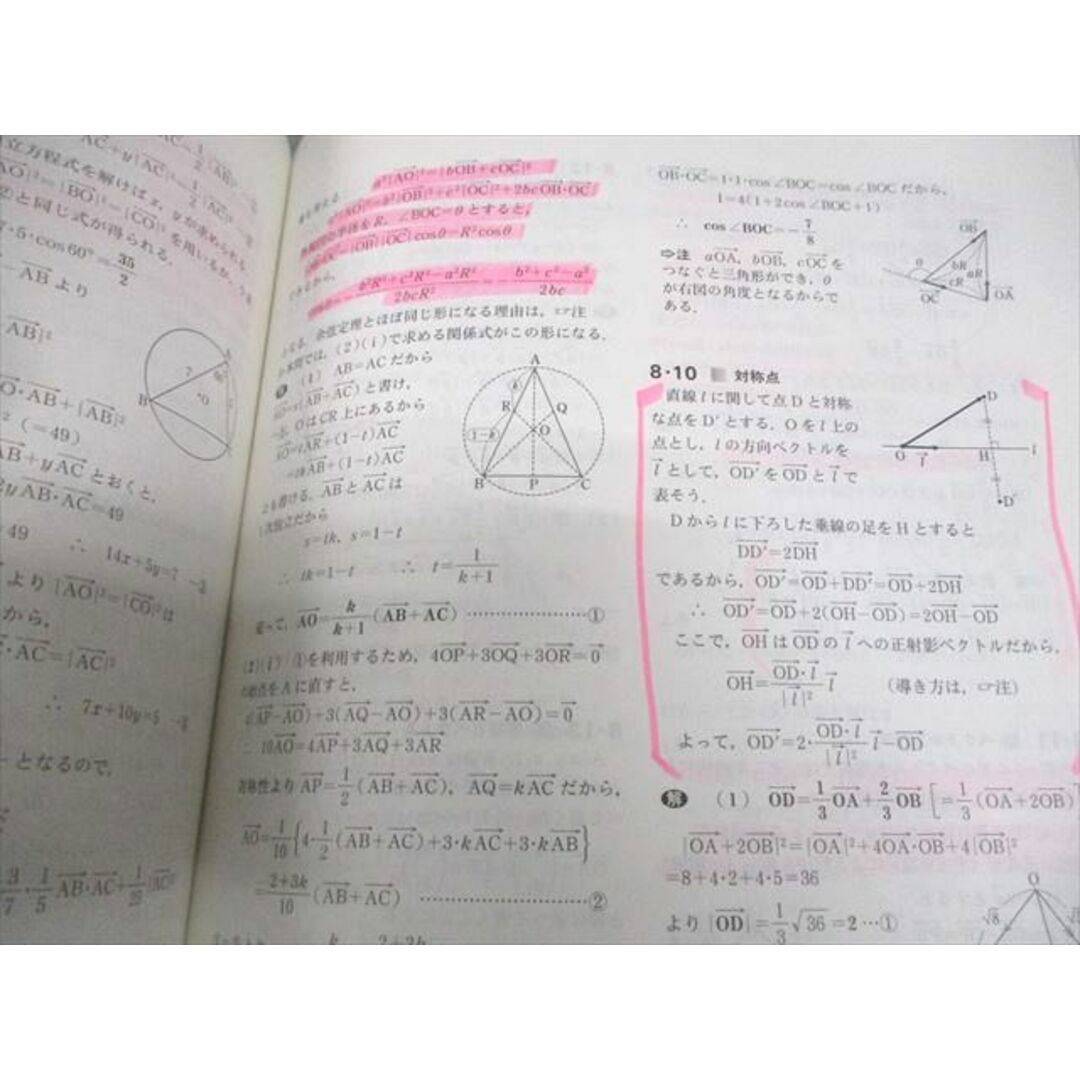 立方程式を解けば x, yが求められる.
|AO|²=|BO|²=|CO|² を用いるか,
②と同じ式が得られる.
7·5·cos60°=35/2
−AB より
AB|²
O·AB+|AB|²
² (=49)
AB+yAC とおくと,
2yAB·AC=49
=49 ∴ 14x+5y=7
より |AO|²=|CO|²は
から,
·AC=|AC|²
∴ 7x+10y=5
となるので,
3/7·1/5 AB·AC+
A
B
O
7
60°
a²|AO|²=|bOB+cOC|²
を考える.
a²|AO|²=b²|OB|²+c²|OC|²+2bcOB·OC
の半径をR, ∠BOC=θとすると,
OB·OC=|OB||OC|cosθ=R²cosθ
できるから,
cosθ=−(b²R²+c²R²−a²R²)/2bcR²=−(b²+c²−a²)/2bc
となる. 余弦定理とほぼ同じ形になる理由は, ☞注
本問では, (2)(i)で求める関係式がこの形になる.
解 (1) AB=ACだから
AO=s(AB+AC)と書け,
一方, OはCR上にあるから
AO=tAR+(1−t)AC
=tkAB+(1−t)AC
とも書ける. ABとACは
1次独立だから
s=tk, s=1−t
∴ tk=1−t ∴ t=1/(k+1)
従って, AO=k/(k+1)(AB+AC) ……………………①
(2)(i) ①を利用するため, 4OP+3OQ+3OR=0
の始点をAに直すと,
4(AP−AO)+3(AQ−AO)+3(AR−AO)=0
∴ 10AO=4AP+3AQ+3AR
対称性より AP=1/2(AB+AC), AQ=kAC だから,
AO=1/10{4·1/2(AB+AC)+3·kAC+3·kAB}
=(2+3k)/10(AB+AC) ……………………②
A
k
R
Q
1−k
O
B
P
C
OB·OC=1·1·cos∠BOC=cos∠BOCだから,
1=4(1+2cos∠BOC+1)
∴ cos∠BOC=−7/8
⇨注 aOA, bOB, cOCを
つなぐと三角形ができ, θ
が右図の角度となるからで
ある.
OB
θ
bR
aR
cR
OC
OA
8・10 対称点
直線lに関して点Dと対称
な点をD′とする. Oをl上の
点とし, lの方向ベクトルを
lとして, OD′をODとlで
表そう.
O
l
H
l
D
D′
Dからlに下ろした垂線の足をHとすると
DD′=2DH
であるから, OD′=OD+DD′=OD+2DH
∴ OD′=OD+2(OH−OD)=2OH−OD
ここで, OHはODのlへの正射影ベクトルだから,
OH=(OD·l)/|l|² l (導き方は, ☞注)
よって, OD′=2·(OD·l)/|l|² l−OD
解 (1) OD=1/3OA+2/3OB [=1/3(OA+2OB)]
|OA+2OB|²=|OA|²+4OA·OB+4|OB|²
=8+4·2+4·5=36
より |OD|=1/3√36=2 …①
O
√8